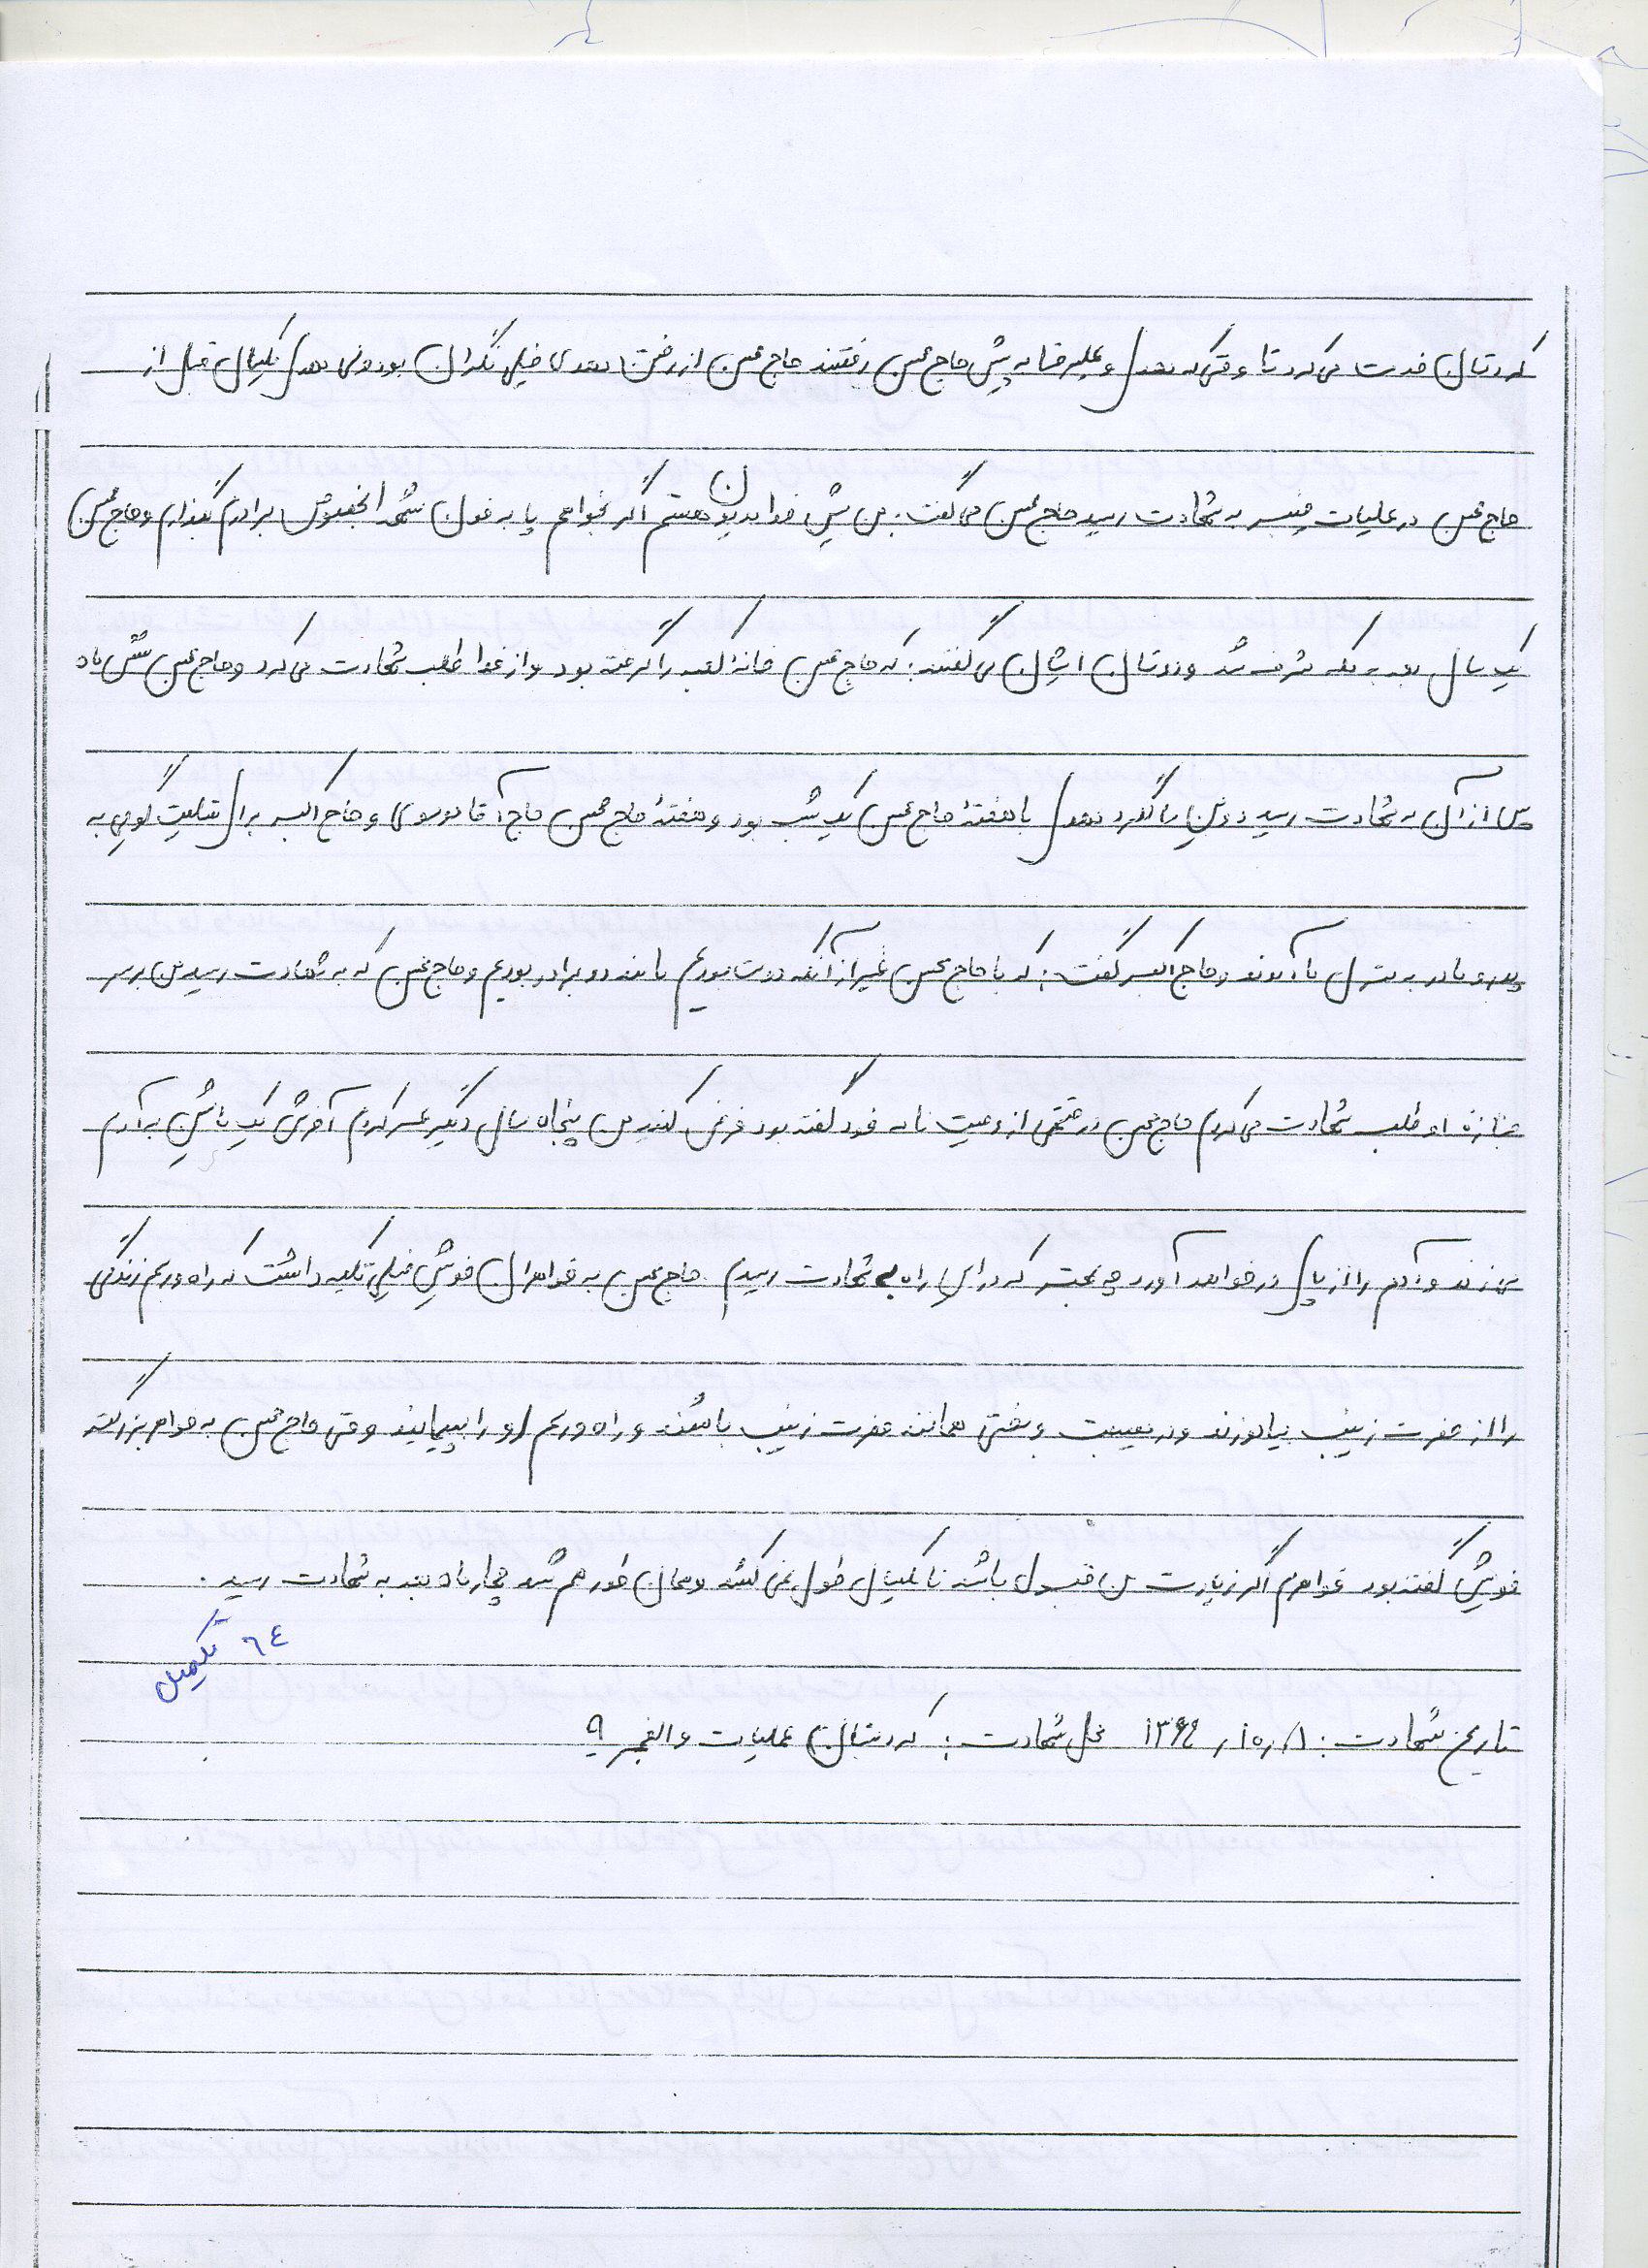 کردستان خدمت می‌کرد تا وقتی که مهدی و علیرضا به پیش حاج محسن رفتند حاج محسن از رفتن مهدی خیلی نگران بود ولی مهدی یکسال قبل از
حاج محسن در عملیات خیبر به شهادت رسید حاج محسن می گفت: من پیش خدا مدیون هستم اگر بخواهم پا به خون شهدا بخصوص برادرم بگذارم و حاج محسن
یک سال بعد به مکه مشرف شد و دوستان ایشان می گفتند: که حاج محسن خانۀ کعبه را گرفته بود و از خدا طلب شهادت می کرد و حاج محسن شش ماه
پس از آن به شهادت رسید و سالگرد مهدی با هفتۀ حاج محسن یک شب بود و هفتۀ حاج محسن حاج آقا موسوی و حاج اکبر برای تسلیت گویی به
پدر و مادر به منزل ما آمدند و حاج اکبر گفت: که با حاج محسن غیر از آنکه دوست بودیم مانند دو برادر بودیم و حاج محسن که به شهادت رسید من بر سر
جنازه او طلب شهادت می کردم حاج محسن در قسمتی از وصیت نامه خود گفته بود فرض کنید من پنجاه سال دیگر عمر کردم آخرش یک ماشین به آدم
می زند و آدم را از پای در خواهد آورد چه بهتر که در این راه به شهادت رسیدم حاج محسن به خواهران خویش خیلی تکیه داشت که راه و رسم زندگی
را از حضرت زینب بیاموزند و در مصیبت و سختی همانند حضرت زینب باشند و راه و رسم او را بپیمایند وقتی حاج محسن به خواهر بزرگتر
خویش گفته بود خواهرم اگر زیارت من قبول باشد تا یکسال طول نمی کشد و همان طور هم شد چهار ماه بعد به شهادت رسید.
٦٤ تکمیل
تاریخ شهادت: ۱۳۶۴ محل شهادت: کردستان عملیات والفجر ۹